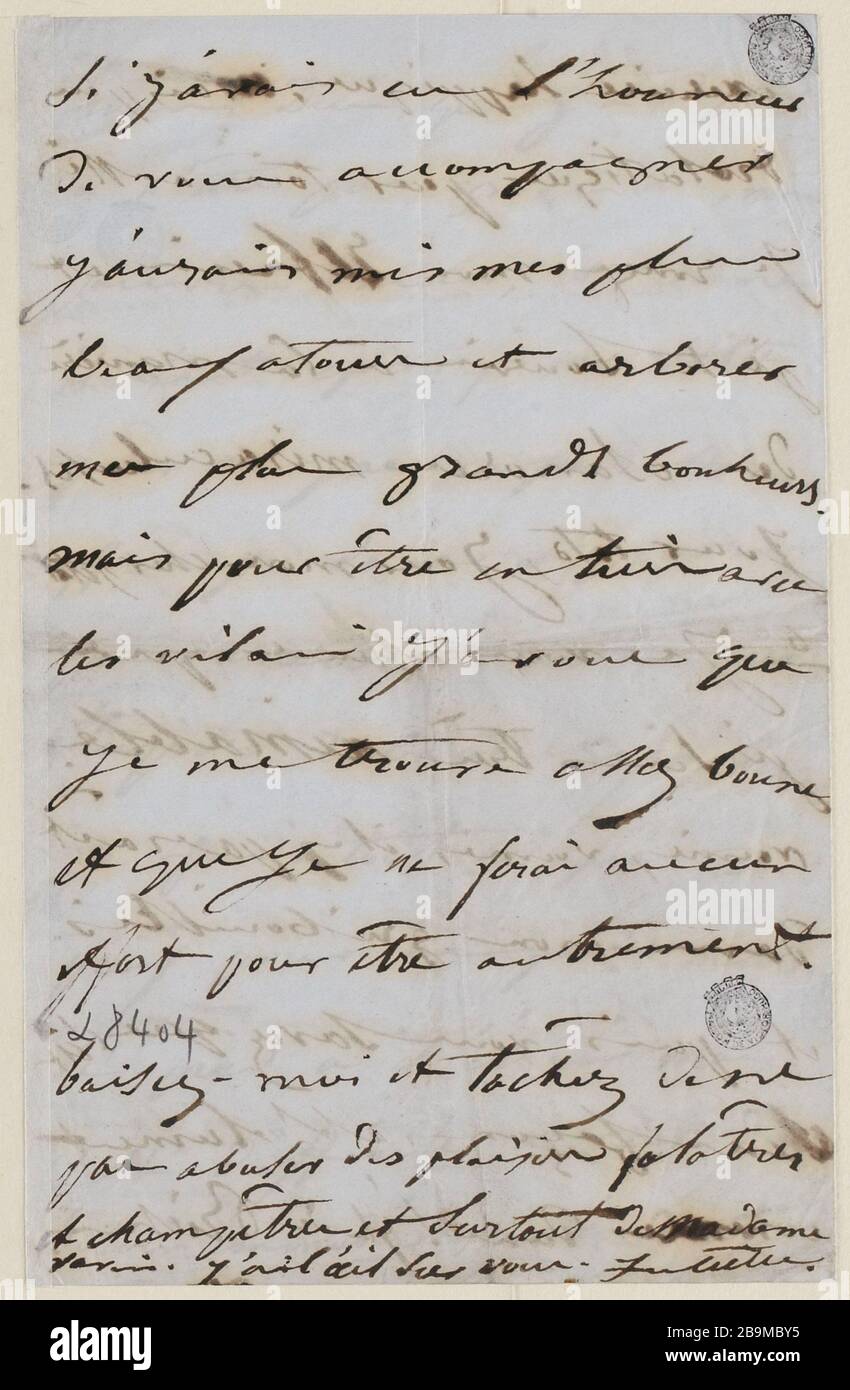 Si j'avais eu l'honneur
de vous accompagner
j'aurais mis mes plus
beaux atours et arborer
mes plus grands bonheurs.
mais pour être en avec
les vilain j'avoue que
je me trouve assez bonne
et que je ne ferai aucun
effort pour être autrement.
28404
baisez-moi et tachez de ne
pas abuser des plaisirs folâtres
et champêtres et surtout de Madame
j'ai l'œil sur vous. Juliette.
alamy
Image ID: 2B9MBY5
www.alamy.com